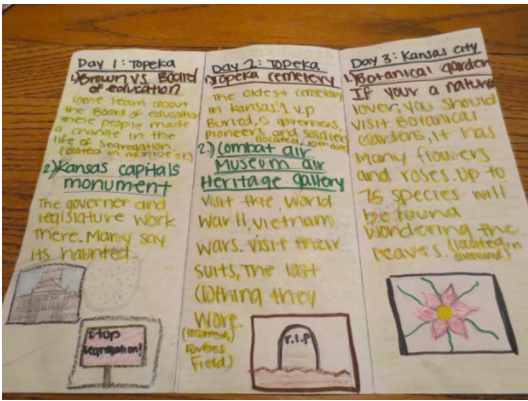 Day 1: Topeka
1.) Brown vs. Board
of education
Come learn about
the Board of education
these people made
a change in the
life of segregation.
2.) Kansas capitals
monument
The governor and
legislature work
There. Many say
its haunted
stop
segregation!
Day 2: Topeka
Topeka cemetery
The oldest cemetery
in Kansas 1 v.p
Buried, 5 governers,
pioneers, and soldiers
2.) Combat air
Museum air
Heritage gallery
Visit the, World
War II, Vietnam,
wars. Visit their
suits, The last
Clothing they
Wore.
(located
Forbes
Field)
r.i.p
Day 3: Kansas city
1. Botanical garden
If your a nature
lover, you should
visit Botanical
Gardens, it has
Many flowers
and roses. Up to
75 species will
be found
wondering the
leaves. (located in